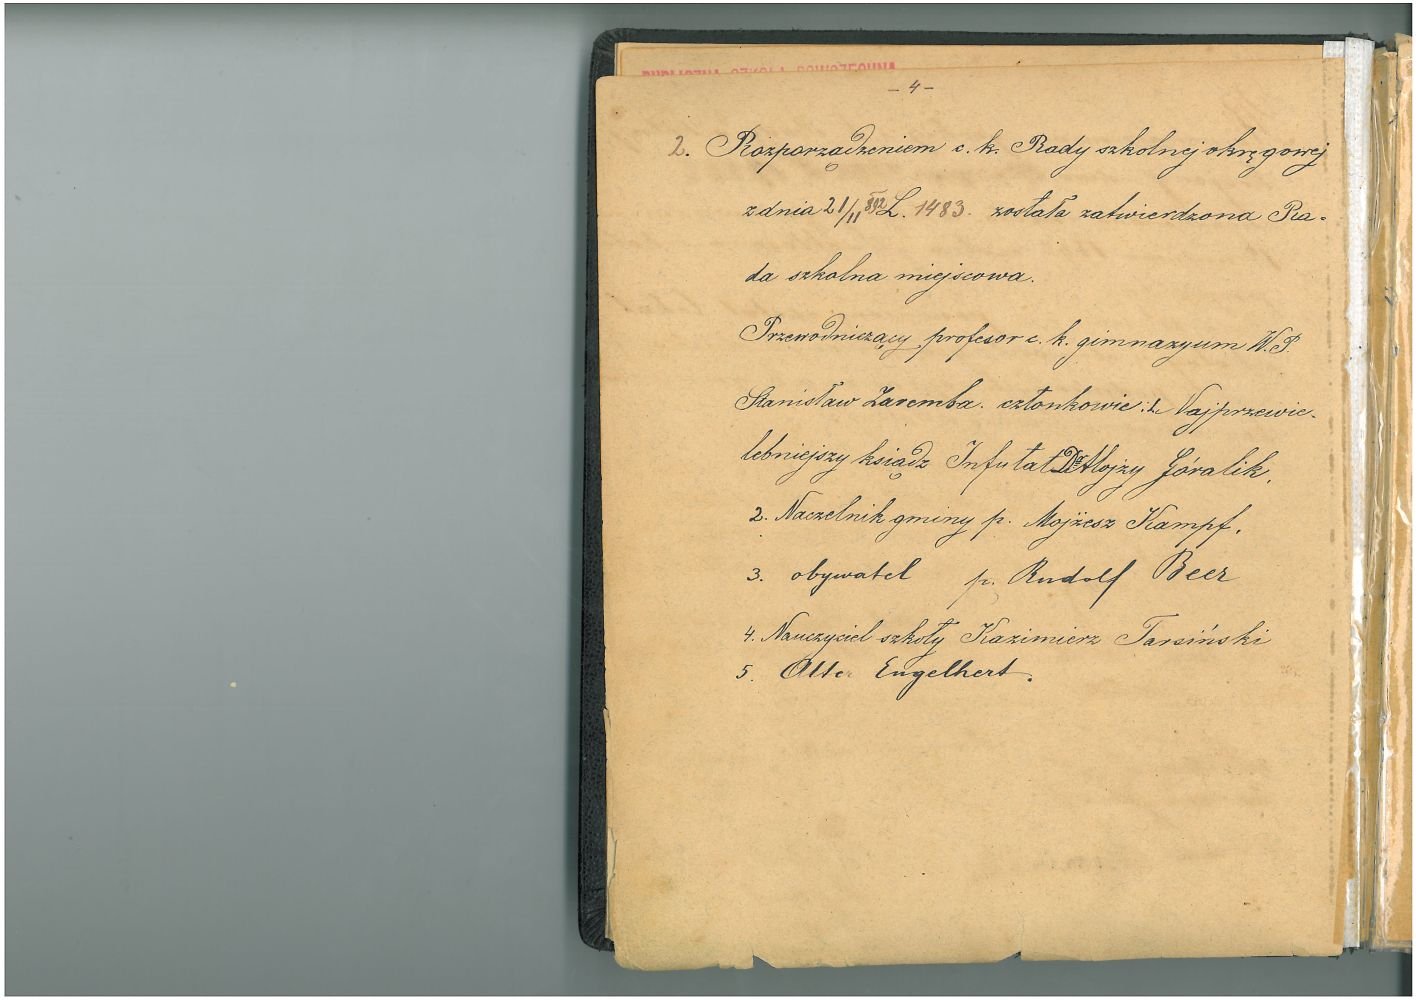 PUBLICZNA SZKOŁA POWSZECHNA
- 4 -
2. Rozporządzeniem c. k. Rady szkolnej okręgowej
z dnia 21/11 892 L. 1483. została zatwierdzona Ra-
da szkolna miejscowa.
Przewodniczący profesor c. k. gimnazyum W. P.
Stanisław Zaremba. członkowie: 1. Najprzewie-
lebniejszy ksiądz Infułat Dr Alojzy Góralik.
2. Naczelnik gminy p. Mojżesz Kampf.
3. obywatel p. Rudolf Beer
4. Nauczyciel szkoły Kazimierz Tarsiński
5. Alter Engelhert.